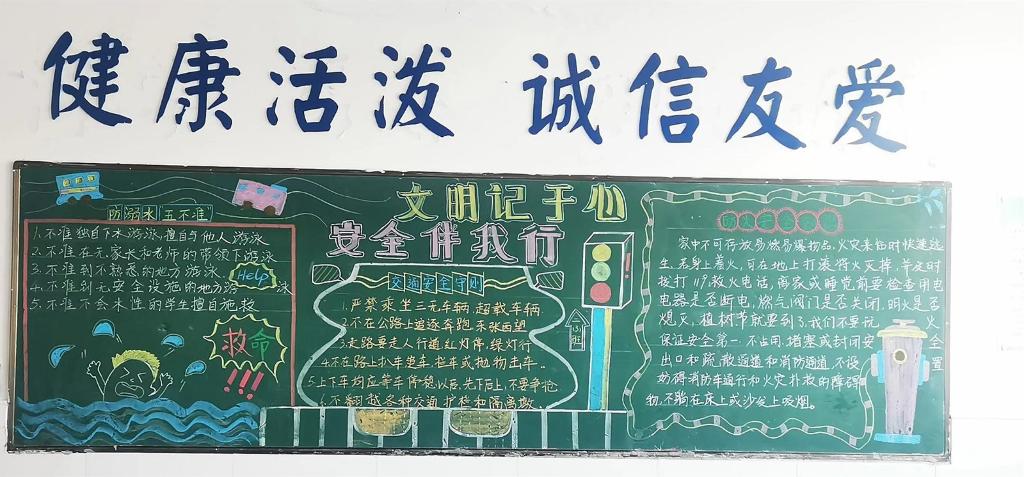 健康活泼 诚信友爱
文明记于心
安全伴我行
防溺水"五不准"
1.不准独自下水游泳,擅自与他人游泳
2.不准在无家长和老师的带领下游泳
3.不准到不熟悉的地方游泳
4.不准到无安全设施的地方游泳
5.不准不会水性的学生擅自施救
Help
救命
交通安全守则
1.严禁乘坐三无车辆,超载车辆
2.不在公路上追逐奔跑,东张西望
3.走路要走人行道,红灯停,绿灯行
4.不在路上扒车追车,拦车或抛物击车.
5.上下车均应等车停稳以后,先下后上,不要争抢
6.不翻越各种交通护栏和隔离墩.
家中不可存放易燃易爆物品.火灾来临时快速逃
生.若身上着火,可在地上打滚将火灭掉,并及时
拨打119救火电话,离家或睡觉前要检查用电
电器是否断电,燃气阀门是否关闭,明火是否
熄灭,植树节就要到了,我们不要玩火
保证安全第一.不占用,堵塞或封闭安全
出口和疏散通道和消防通道,不设置
妨碍消防车通行和火灾扑救的障碍
物,不躺在床上或沙发上吸烟。